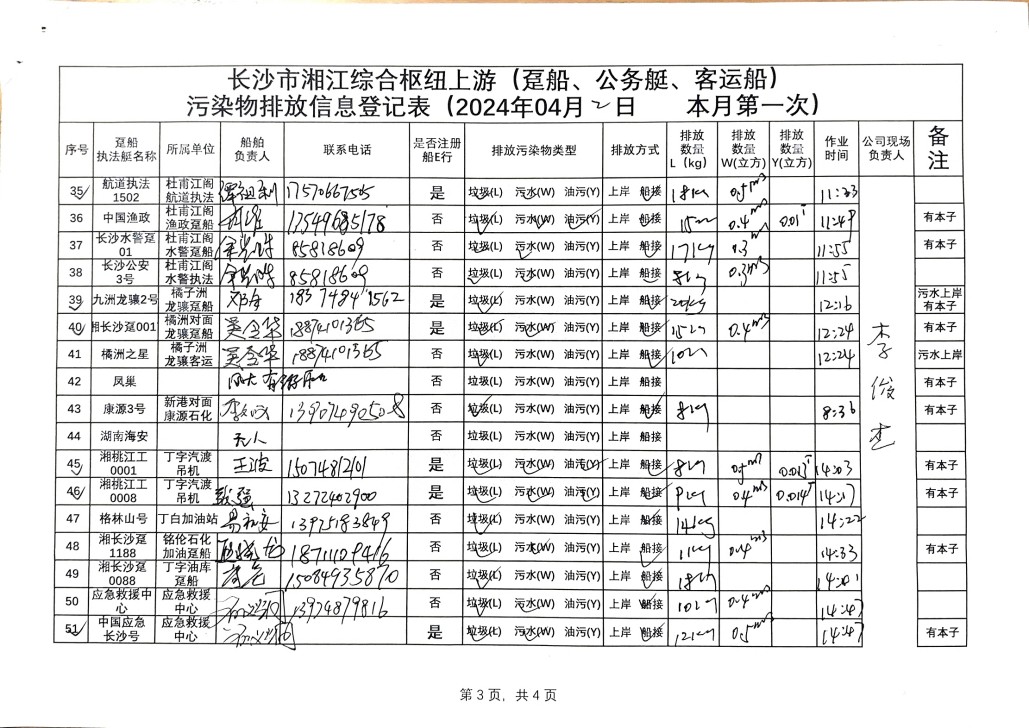 长沙市湘江综合枢纽上游（趸船、公务艇、客运船）
污染物排放信息登记表（2024年04月2日 本月第一次）
序号 趸船执法艇名称 所属单位 船舶负责人 联系电话 是否注册船E行 排放污染物类型 排放方式 排放数量L（kg） 排放数量W(立方) 排放数量Y(立方) 作业时间 公司现场负责人 备注
35 航道执法1502 杜甫江阁航道执法 是 垃圾(L) 污水(W) 油污(Y) 上岸 船接 18kg 0.5m³ 11:33
36 中国渔政 杜甫江阁渔政趸船 13549685178 否 垃圾(L) 污水(W) 油污(Y) 上岸 船接 0.4m³ 11:49 有本子
37 长沙水警趸01 杜甫江阁水警趸船 85818609 否 垃圾(L) 污水(W) 油污(Y) 上岸 船接 17kg 11:55 有本子
38 长沙公安3号 杜甫江阁水警执法 85818609 否 垃圾(L) 污水(W) 油污(Y) 上岸 船接 8kg 0.3m³ 11:55
39 九洲龙骧2号 橘子洲龙骧趸船 邓海 18374841562 是 垃圾(L) 污水(W) 油污(Y) 上岸 船接 20kg 12:16 污水上岸有本子
40 湘长沙趸001 橘洲对面龙骧趸船 吴金华 18874101355 是 垃圾(L) 污水(W) 油污(Y) 上岸 船接 15kg 0.4m³ 12:24 有本子
41 橘洲之星 橘子洲龙骧客运 吴金华 18874101355 否 垃圾(L) 污水(W) 油污(Y) 上岸 船接 10kg 12:24 污水上岸
42 凤巢 否 垃圾(L) 污水(W) 油污(Y) 上岸 船接 有本子
43 康源3号 新港对面康源石化 13907490508 否 垃圾(L) 污水(W) 油污(Y) 上岸 船接 8kg 8:36 有本子
44 湖南海安 无人 否 垃圾(L) 污水(W) 油污(Y) 上岸 船接
45 湘桃江工0001 丁字汽渡吊机 王波 15074812101 是 垃圾(L) 污水(W) 油污(Y) 上岸 船接 8kg 14:03 有本子
46 湘桃江工0008 丁字汽渡吊机 13272402900 是 垃圾(L) 污水(W) 油污(Y) 上岸 船接 9kg 0.4m³ 14:17 有本子
47 格林山号 丁白加油站 13975183849 否 垃圾(L) 污水(W) 油污(Y) 上岸 船接 14kg 14:22
48 湘长沙趸1188 铭伦石化加油趸船 18711109416 否 垃圾(L) 污水(W) 油污(Y) 上岸 船接 11kg 0.4m³ 14:33 有本子
49 湘长沙趸0088 丁字油库趸船 15084935870 否 垃圾(L) 污水(W) 油污(Y) 上岸 船接 18kg
50 应急救援中心 应急救援中心 13974879816 否 垃圾(L) 污水(W) 油污(Y) 上岸 船接 10kg 0.4m³ 14:47
51 中国应急长沙号 应急救援中心 是 垃圾(L) 污水(W) 油污(Y) 上岸 船接 12kg 0.5m³ 14:47 有本子
李
俊
杰
第 3 页，共 4 页